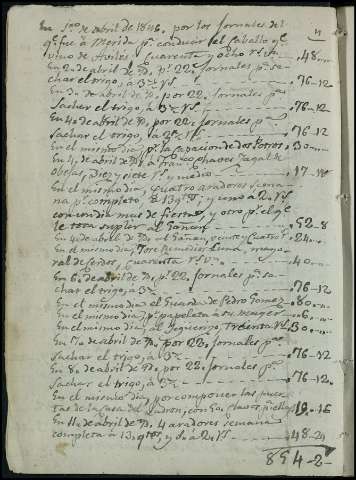 En 1.º de abril de 1846. por los jornales del
q.e fue à Merida p.a conducir el caballo q.e
vino de Aviles, quarenta y ocho rs. vn. 48-
En 2 de abril de id. p.r 22. jornales p.a sa-
char el trigo, à 3 76-12
En 3 de abril de id. por 22. jornales p.a
sachar el trigo, à 3 76-12
En 4 de abril de id. por 22. jornales p.a
sachar el trigo, à 76-12
En el mismo dia, p.r la capacion de dos Potros 30-
En 4 de abril de id. à Fran.co Chaves zagal de
obejas, Diez y siete rs. y medio 17-
En el mismo dia, quatro aradores sema-
na p.r completo, à 13 q.tos, y uno à 2 rs.
con un dia mas de fiesta, y otro p.r el q.e
le toca suplir al Gañan 52-8
En 4 de abril de id. al Gañan, veinte y quatro 24-
En el mismo dia, Jose Benedicto Luna, mayo-
ral de cerdos, quarenta rs. vn. 40-
En 6 de abril de id. p.r 22. jornales p.a sa-
char el trigo, à 3 76-12
En el mismo dia el Guarda de Pedro Gomez 80-
En el mismo dia p.r papeleta à su muger 6-
En el mismo dia, al Yeguerizo, treinta rs. 30-
En 7 de abril de id. por 22. jornales p.a
sachar el trigo, à 3 76-12
En 8 de abril de id. por 22. jornales p.a
sachar el trigo, à 3 76-12.
En el mismo dia, por componer las puer-
tas de la casa del con clavos p.a ellas 19-16
En 11 de abril de id. 4 aradores semana
completa à 13 q.tos, y à 2 rs. 48-
854-2-